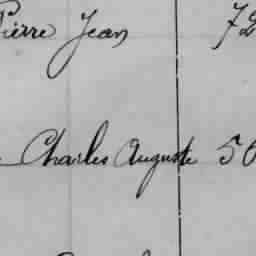 Pierre Jean 72
Charles Auguste 50